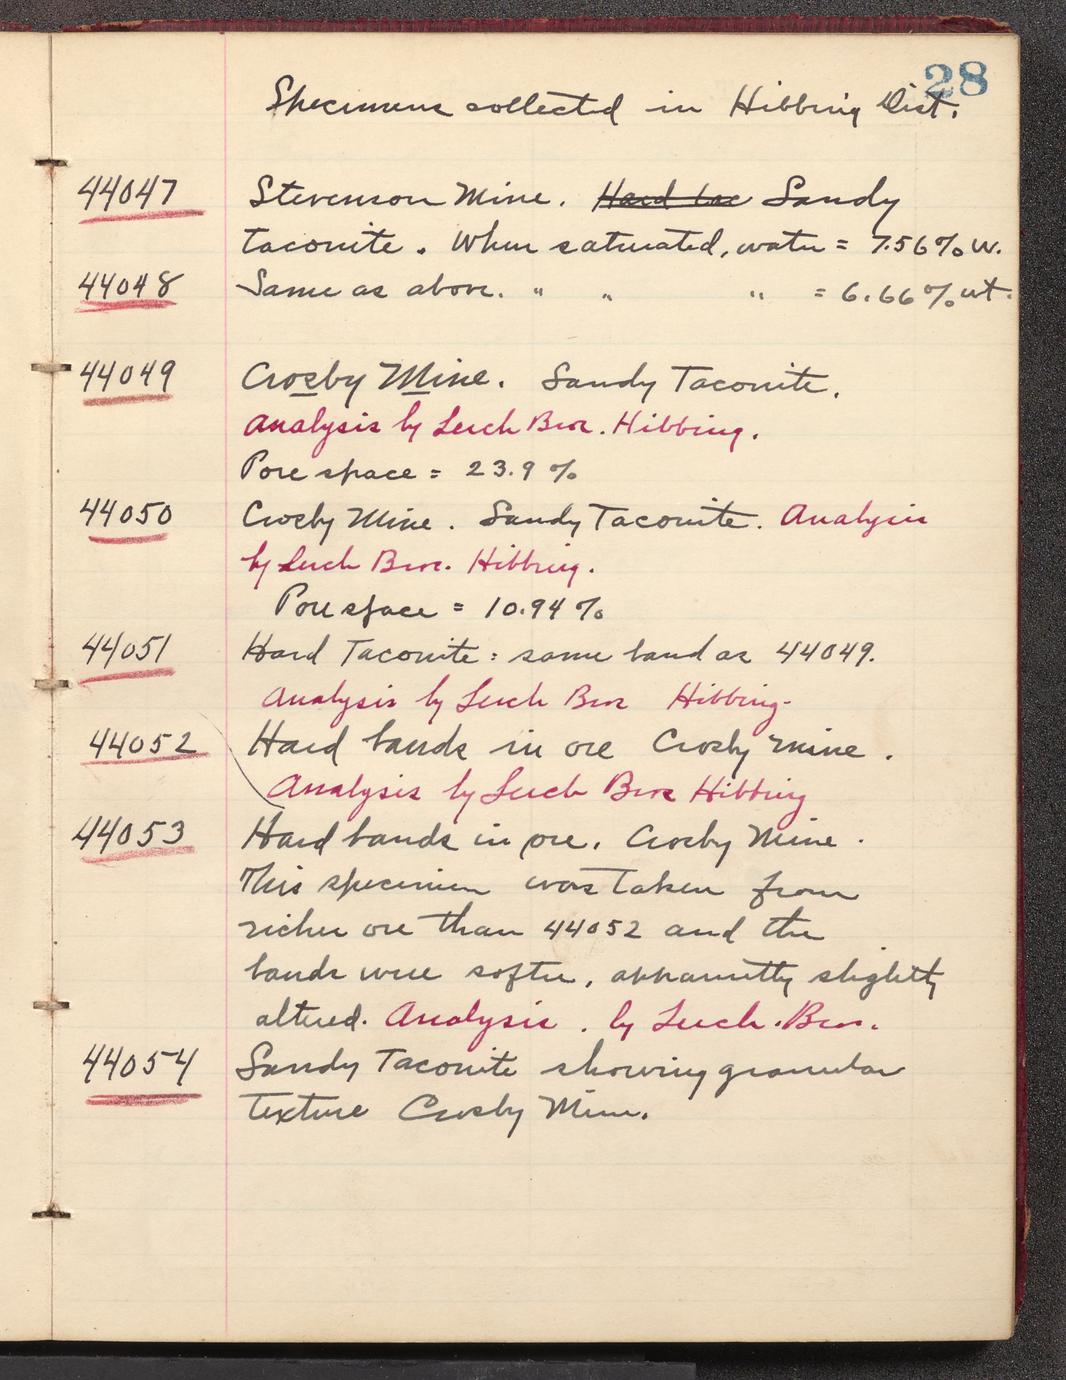 28
Specimens collected in Hibbing Dist.
44047 Stevenson Mine. Hard tac Sandy
taconite. When saturated, water = 7.56% w.
44048 Same as above. " " " = 6.66% wt.
44049 Crosby Mine. Sandy Taconite.
Analysis by Lerch Bros. Hibbing.
Pore space = 23.9 %
44050 Crosby Mine. Sandy Taconite. Analysis
by Lerch Bros. Hibbing.
Pore space = 10.94 %
44051 Hard Taconite: same band as 44049.
Analysis by Lerch Bros Hibbing.
44052 Hard bands in ore Crosby mine.
Analysis by Lerch Bros Hibbing
44053 Hard bands in ore. Crosby Mine.
This specimen was taken from
richer ore than 44052 and the
bands were softer, apparently slightly
altered. Analysis. by Lerch. Bros.
44054 Sandy Taconite showing granular
texture Crosby Mine.